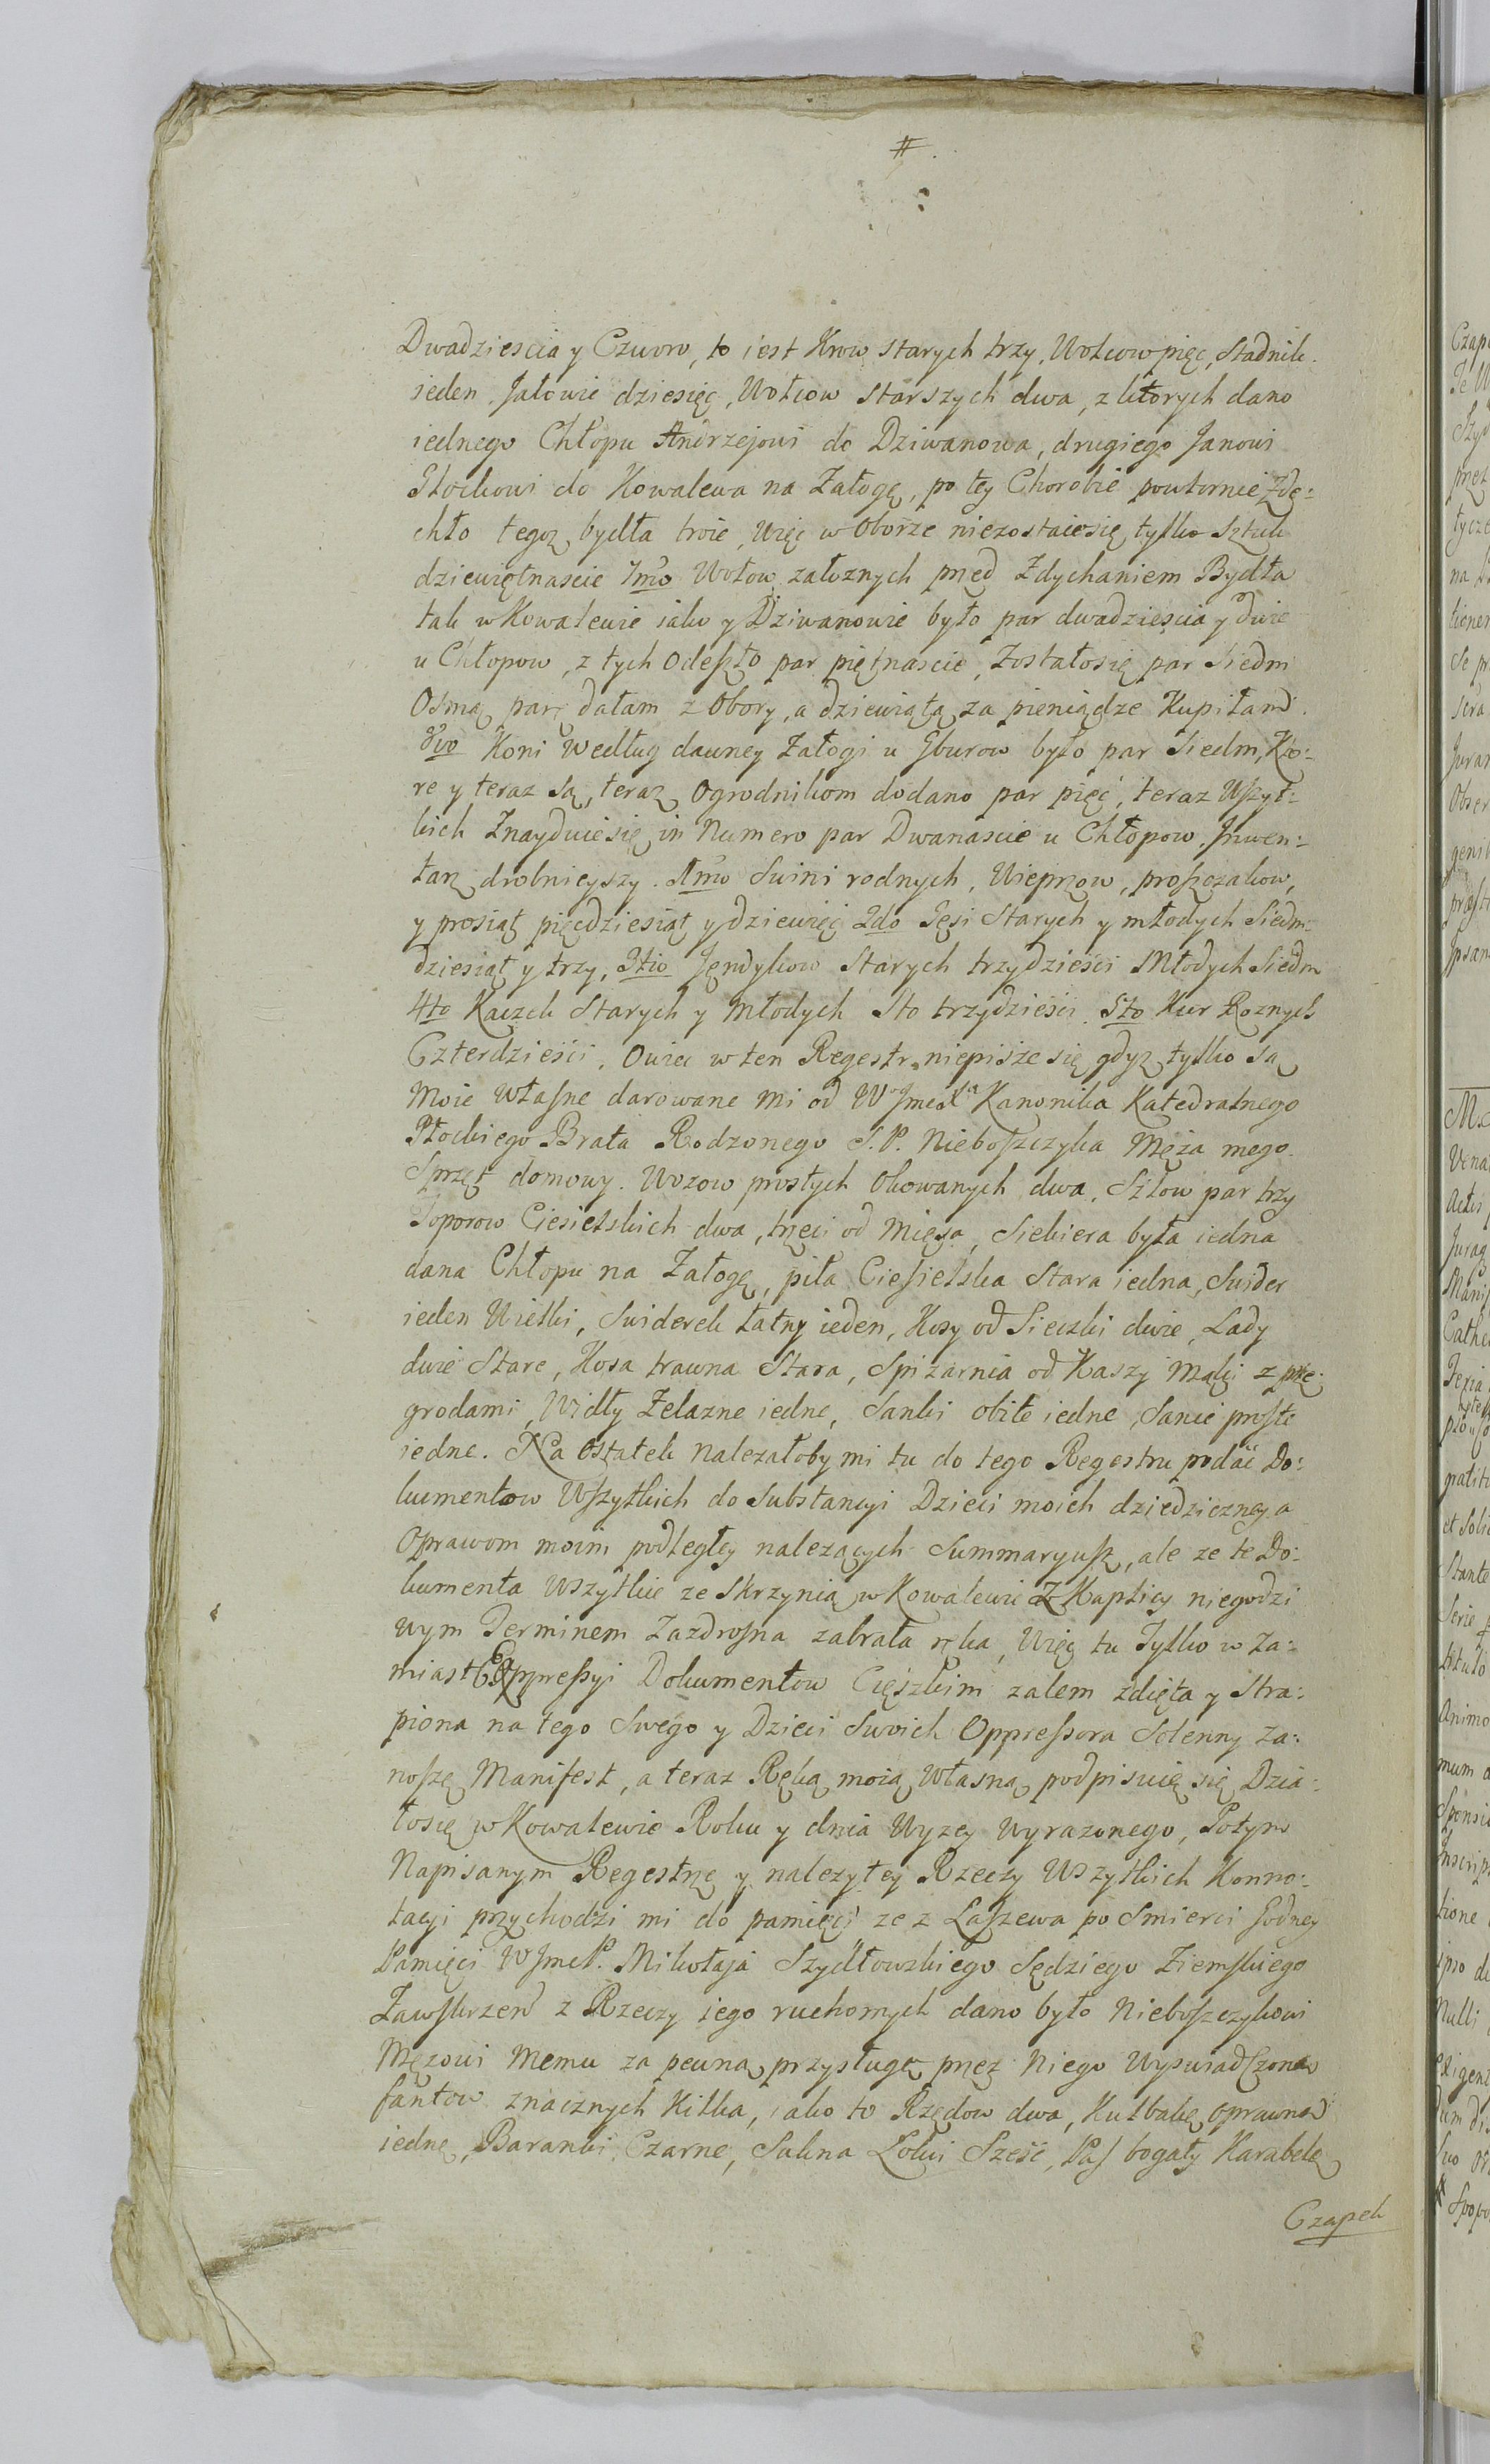 #
Dwadziescia y Czworo, to iest Krow starych trzy, Wołcow pięc, Stadnik
ieden, Jałowic dziesięc, Wołcow Starszych dwa, z ktorych dano
iednego Chłopu Andrzejowi do Dziwanowa, drugiego Janowi
Płockowi do Kowalewa na Załogę, po tey Chorobie powtornie Zdę:
chło tegoz bydła troie, Więc w Oborze niezostaiesię tylko Sztuk
dziewiętnascie 7mo Wołow załoznych przed Zdychaniem Bydła
tak w Kowalewie iako y Dziwanowie było par dwadziescia y dwie
u Chłopow, z tych Odeszło par piętnascie, Zostałosię par Siedm
Osmą parę dałam z Obory, a dziewiątą za pieniądze Kupiłam.
8vo Koni Według dawney Załogi u Gburow było par Siedm, Kto:
re y teraz Są, teraz Ogrodnikom dodano par pięć, teraz Wszyt:
kich Znayduiesię in Numero par Dwanascie u Chłopow. Inwen:
tarz drobnieyszy. 1mo Swini rodnych, Wieprzow, proszczakow,
y prosiąt pięcdziesiąt y dziewięć 2do Gęsi Starych y młodych Siedm:
dziesiąt y trzy, 3tio Jendykow Starych trzydzieści Młodych Siedm
4to Kaczek Starych y Młodych Sto trzydzieści 5to Kur Roznych
Czterdzieści. Owiec w ten Regestr niepisze się gdyz tylko Są
Moie Własne darowane mi od W Jmci Xa Kanonika Katedralnego
Płockiego Brata Rodzonego S. P. Nieboszczyka Męża mego.
Sprzęt domowy. Wozow prostych Okowanych dwa, Szlow par trzy
Toporow Ciesielskich dwa, trzeci od Mięsa, Siekiera była iedna
dana Chłopu na Załogę, piła Ciesielska Stara iedna, Swider
ieden Wielki, Swiderek łatny ieden, Kosy od Sieczki dwie, Lady
dwie Stare, Kosa trawna Stara, Spizarnia od Kaszy Mąki z prze:
grodami, Widły Zelazne iedne, Sanki obite iedne, Sanie proste
iedne. Na Ostatek nalezałoby mi tu do tego Regestru podać Do:
kumentow Wszytkich do Substancyi Dzieci moich dziedziczney a
Oprawom moim podległey nalezących Summaryusz, ale ze te Do:
kumenta Wszytkie ze Skrzynią w Kowalewie z Kaplicy niegodzi
wym Terminem Zazdrosna zabrała ręka, Więc tu Tylko w Za:
miast Exppressyi Dokumentow Cięszkim zalem zdięta y Stra:
piona na tego Swego y Dzieci Swoich Oppressora Solenny Za:
noszę Manifest, a teraz Ręką moią Własną podpisuię się Dzia:
łosię w Kowalewie Roku y dnia Wyzey Wyrazonego, Potym
Napisanym Regestrze y nalezytey Rzeczy Wszytkich Konno:
tacyi przychodzi mi do pamięci ze z Łaszewa po Smierci Godney
Pamięci W Jmc P. Mikołaja Szydłowskiego Sędziego Ziemskiego
Zawskrzen z Rzeczy iego ruchomych dano było Nieboszczykowi
Męzowi Memu za pewną przysługę przez Niego Wyswiadczoną
fantow znacznych Kilka, iako to Rzędow dwa, Kulbakę oprawną
iednę, Baranki Czarne, Sukna Łokci Sześć, Pas bogaty Karabelę
Czapek